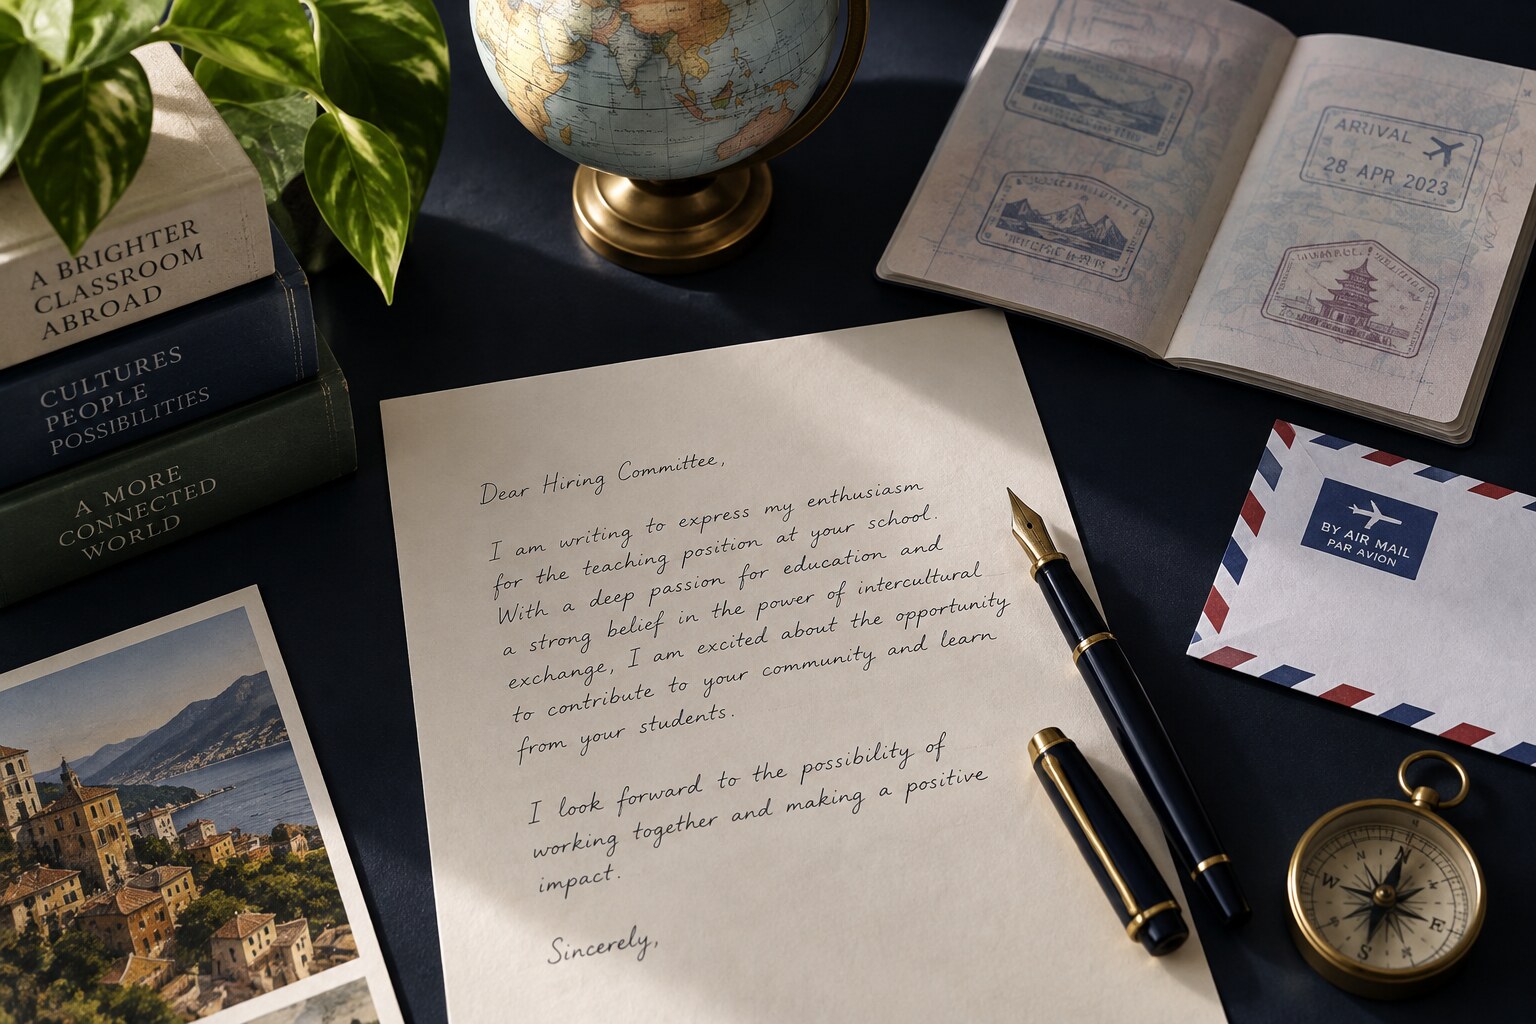 A BRIGHTER
CLASSROOM
ABROAD
CULTURES
PEOPLE
POSSIBILITIES
A MORE
CONNECTED
WORLD
ARRIVAL
28 APR 2023
BY AIR MAIL
PAR AVION
Dear Hiring Committee,
I am writing to express my enthusiasm
for the teaching position at your school.
With a deep passion for education and
a strong belief in the power of intercultural
exchange, I am excited about the opportunity
to contribute to your community and learn
from your students.
I look forward to the possibility of
working together and making a positive
impact.
Sincerely,
N
W
E
S